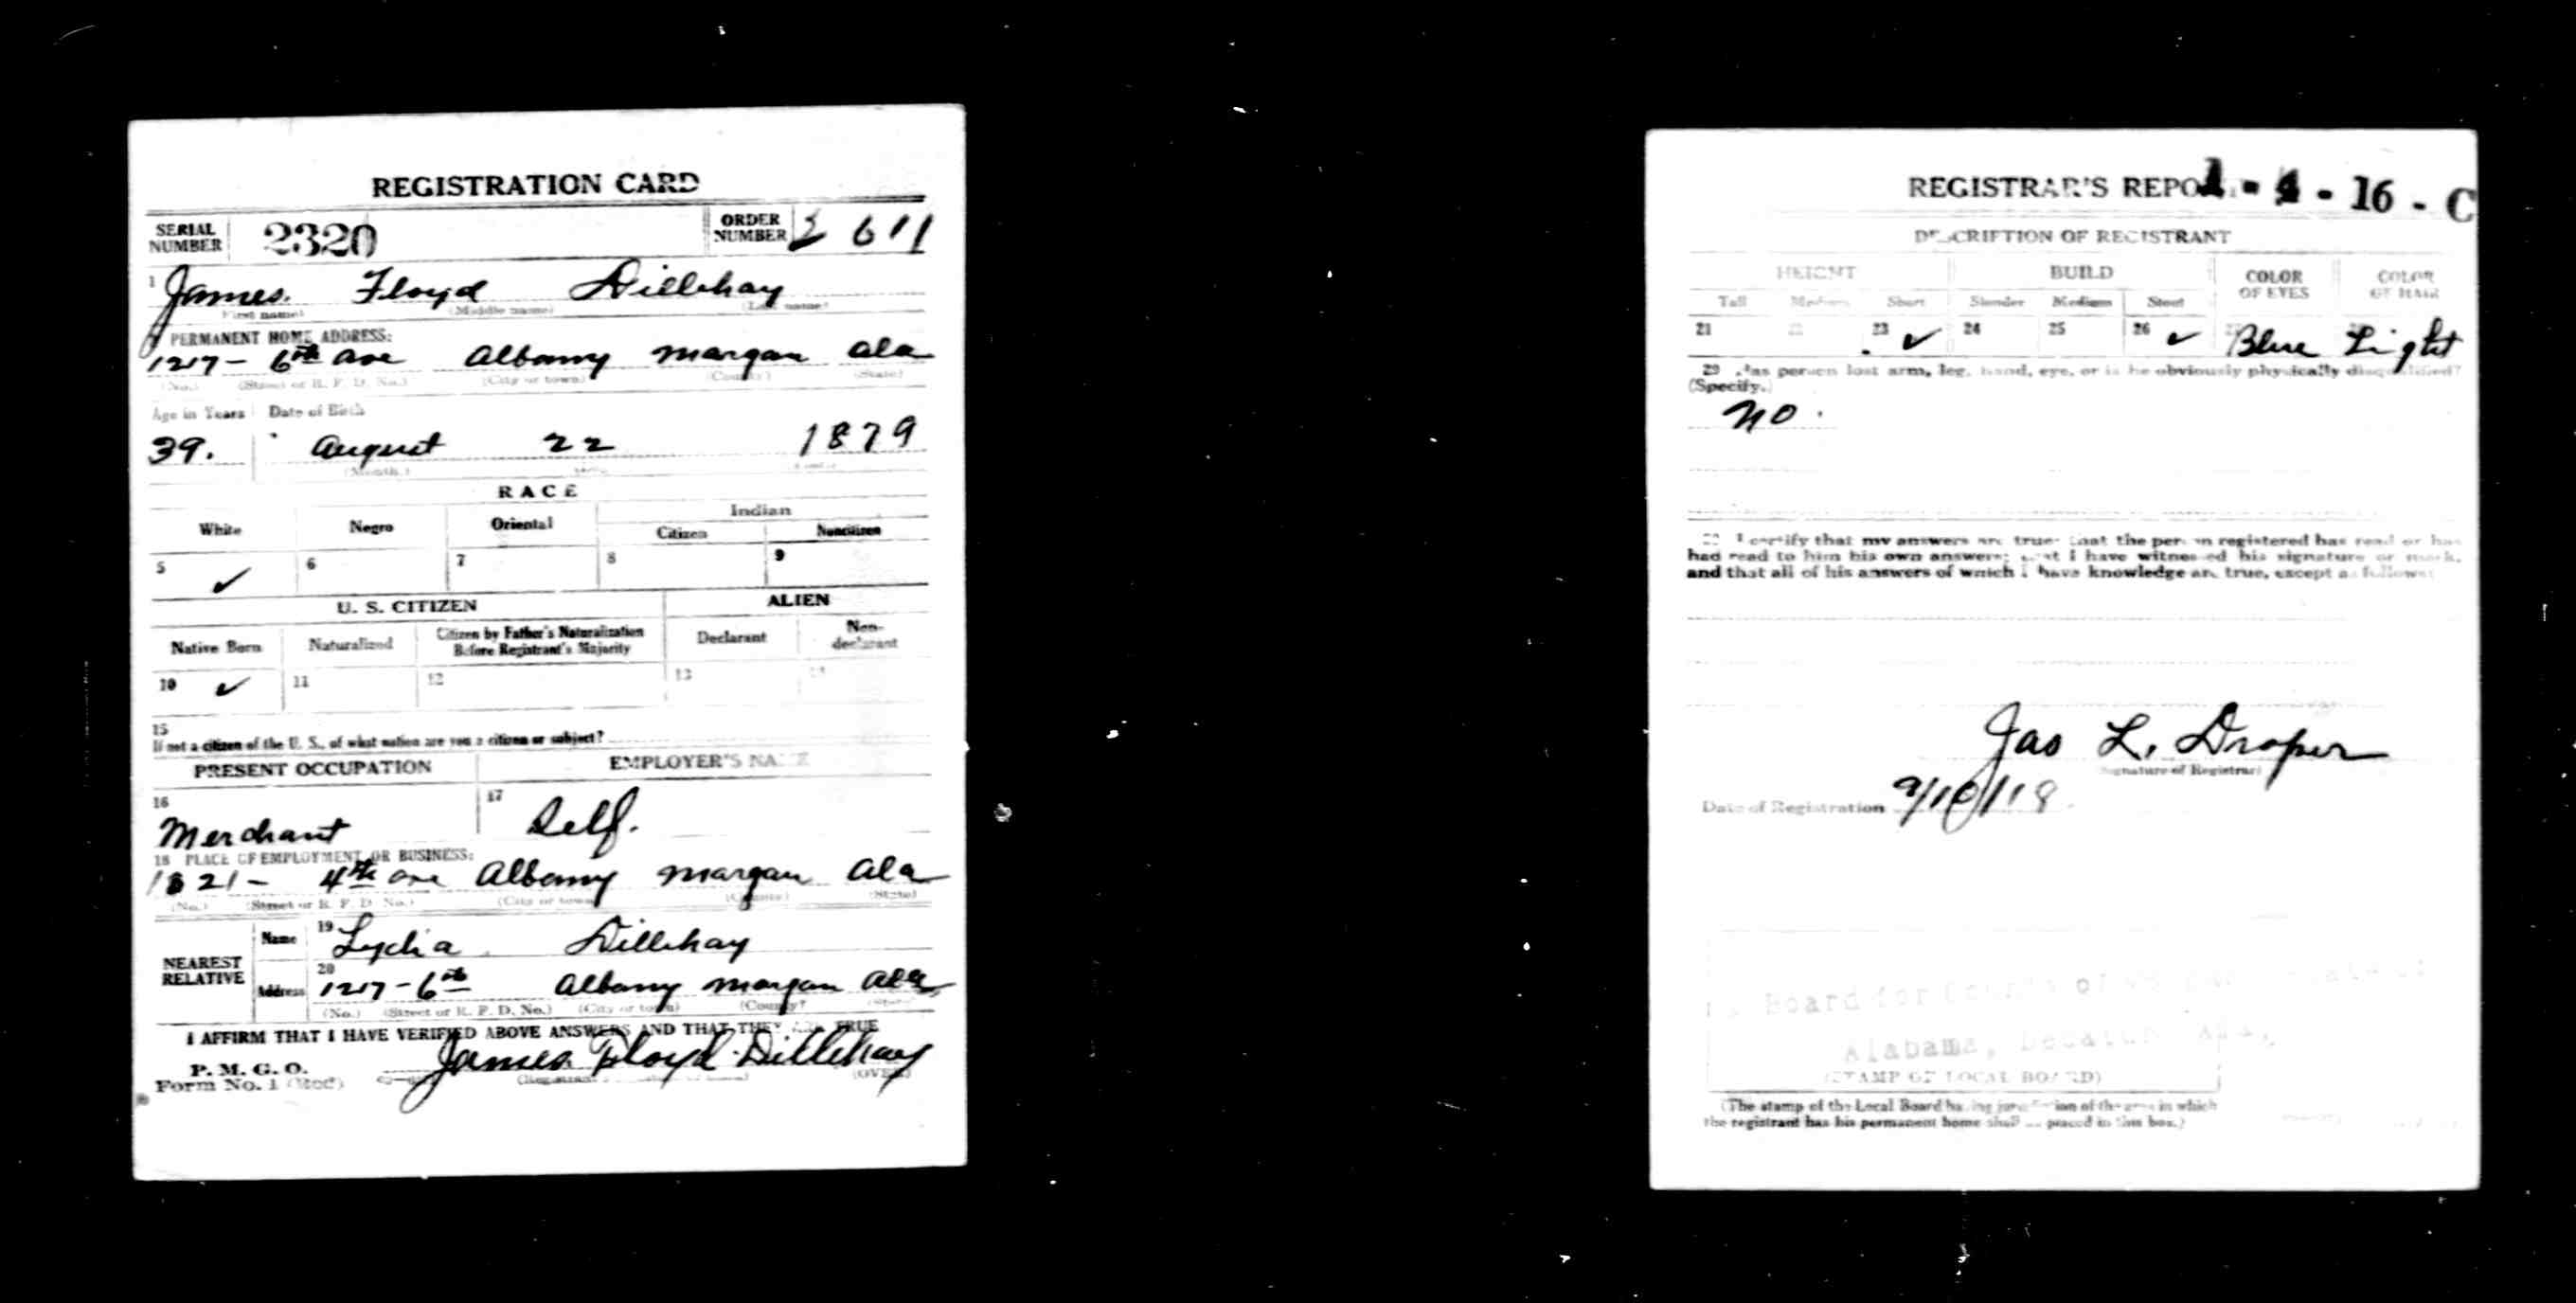 REGISTRATION CARD
SERIAL NUMBER 2320 ORDER NUMBER 2611
1 James. Floyd Dillehay
(First name) (Middle name) (Last name)
PERMANENT HOME ADDRESS:
1217 - 6th ave Albany Morgan Ala
(No.) (Street or R. F. D. No.) (City or town) (County) (State)
Age in Years Date of Birth
39. August 22 1879
(Month.)
RACE
White Negro Oriental Indian
Citizen Noncitizen
5 ✓ 6 7 8 9
U. S. CITIZEN ALIEN
Native Born Naturalized Citizen by Father's Naturalization Before Registrant's Majority Declarant Non-declarant
10 ✓ 11 12 13
15
If not a citizen of the U. S., of what nation are you a citizen or subject?
PRESENT OCCUPATION EMPLOYER'S NAME
16 Merchant 17 Self.
18 PLACE OF EMPLOYMENT OR BUSINESS:
4th ave Albany Morgan Ala
(No.) (Street or R. F. D. No.) (City or town) (County) (State)
NEAREST RELATIVE
Name 19 Lydia Dillehay
Address 20 1217 - 6th Albany Morgan Ala
(No.) (Street or R. F. D. No.) (City or town) (County) (State)
I AFFIRM THAT I HAVE VERIFIED ABOVE ANSWERS AND THAT THEY ARE TRUE
P. M. G. O.
Form No. 1 (Red) James Floyd Dillehay
(OVER)
REGISTRAR'S REPORT 16 - C
DESCRIPTION OF REGISTRANT
HEIGHT BUILD COLOR OF EYES COLOR OF HAIR
Tall Medium Short Slender Medium Stout
21 22 23 ✓ 24 25 26 ✓ Blue Light
29 Has person lost arm, leg, hand, eye, or is he obviously physically disqualified?
(Specify.)
no.
I certify that my answers are true; that the person registered has read or has
had read to him his own answers; that I have witnessed his signature or mark,
and that all of his answers of which I have knowledge are true, except as follows:
Jas L. Draper
(Signature of Registrar)
Date of Registration
Board for County of
Alabama, Decatur Ala,
(STAMP OF LOCAL BOARD)
(The stamp of the Local Board having jurisdiction of the area in which
the registrant has his permanent home shall be placed in this box.)